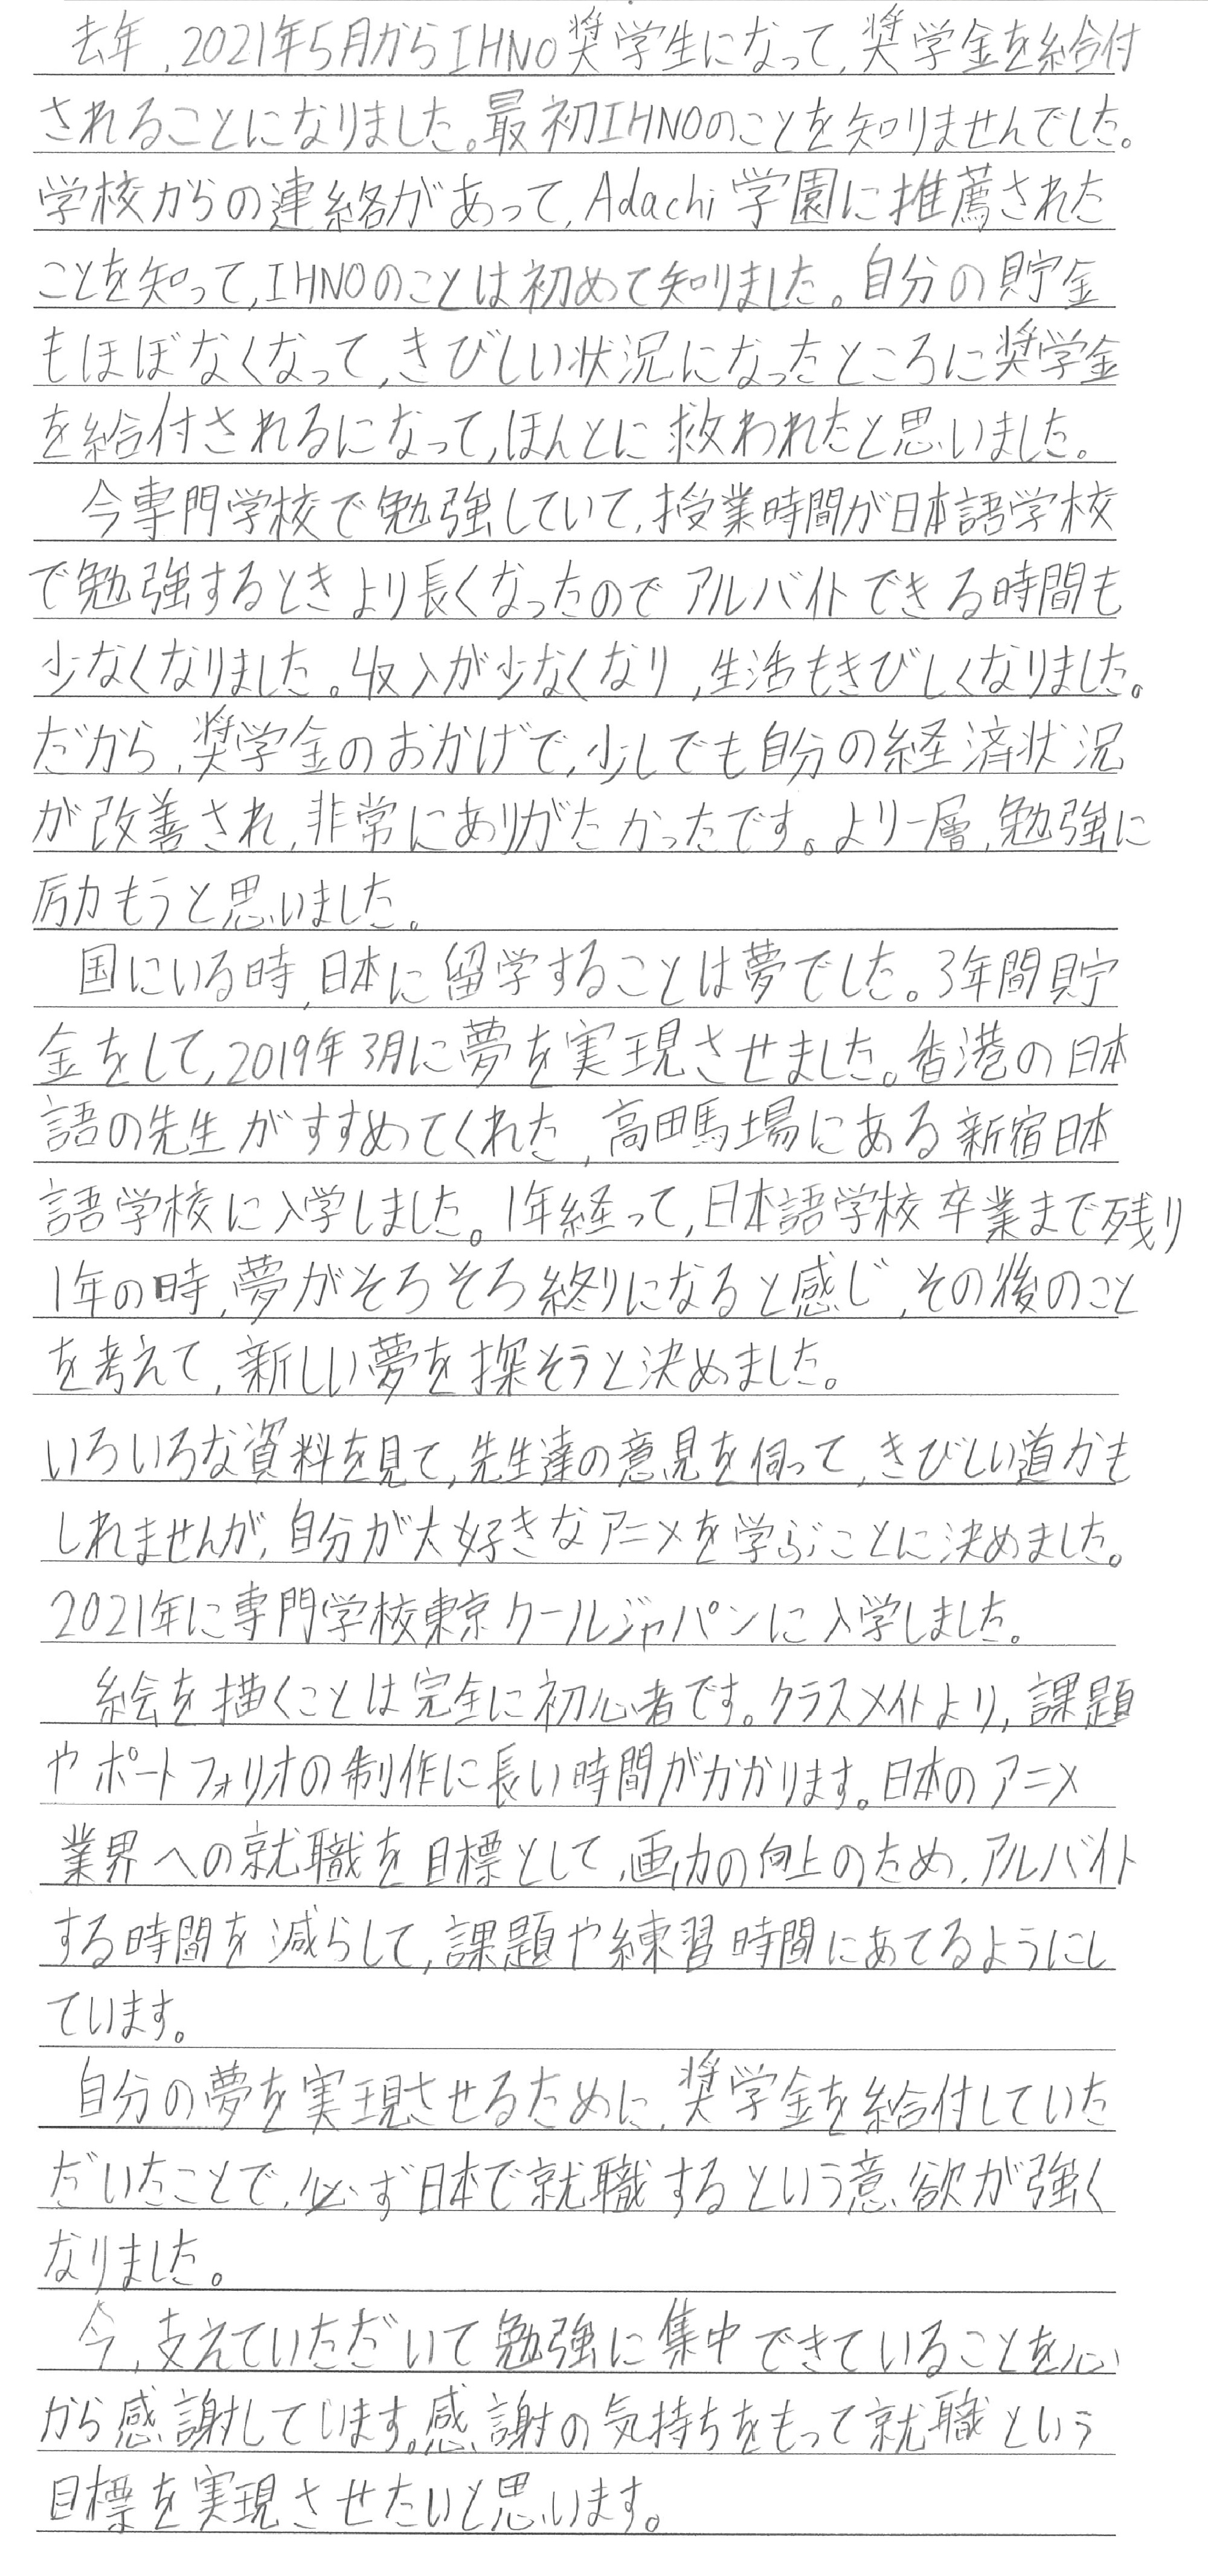 去年,2021年5月からIHNO奨学生になって,奨学金を給付
されることになりました。最初IHNOのことを知りませんでした。
学校からの連絡があって,Adachi学園に推薦された
ことを知って,IHNOのことは初めて知りました。自分の貯金
もほぼなくなって,きびしい状況になったところに奨学金
を給付されるになって,ほんとに救われたと思いました。
今専門学校で勉強していて,授業時間が日本語学校
で勉強するときより長くなったのでアルバイトできる時間も
少なくなりました。収入が少なくなり,生活もきびしくなりました。
だから,奨学金のおかげで,少しでも自分の経済状況
が改善され,非常にありがたかったです。より一層,勉強に
励もうと思いました。
国にいる時,日本に留学することは夢でした。3年間貯
金をして,2019年3月に夢を実現させました。香港の日本
語の先生がすすめてくれた,高田馬場にある新宿日本
語学校に入学しました。1年経って,日本語学校卒業まで残り
1年の時,夢がそろそろ終りになると感じ,その後のこと
を考えて,新しい夢を探そうと決めました。
いろいろな資料を見て,先生達の意見を伺って,きびしい道かも
しれませんが,自分が大好きなアニメを学ぶことに決めました。
2021年に専門学校東京クールジャパンに入学しました。
絵を描くことは完全に初心者です。クラスメイトより,課題
やポートフォリオの制作に長い時間がかかります。日本のアニメ
業界への就職を目標として,画力の向上のため,アルバイト
する時間を減らして,課題や練習時間にあてるようにし
ています。
自分の夢を実現させるために,奨学金を給付していた
だいたことで,必ず日本で就職するという意欲が強く
なりました。
今,支えていただいて勉強に集中できていることを心
から感謝しています。感謝の気持ちをもって就職という
目標を実現させたいと思います。